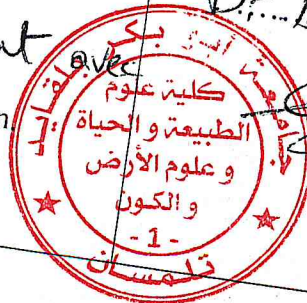 avec
جامعة أبو بكر بلقايد
كلية علوم
الطبيعة و الحياة
و علوم الأرض
و الكون
- 1 -
تلمسان